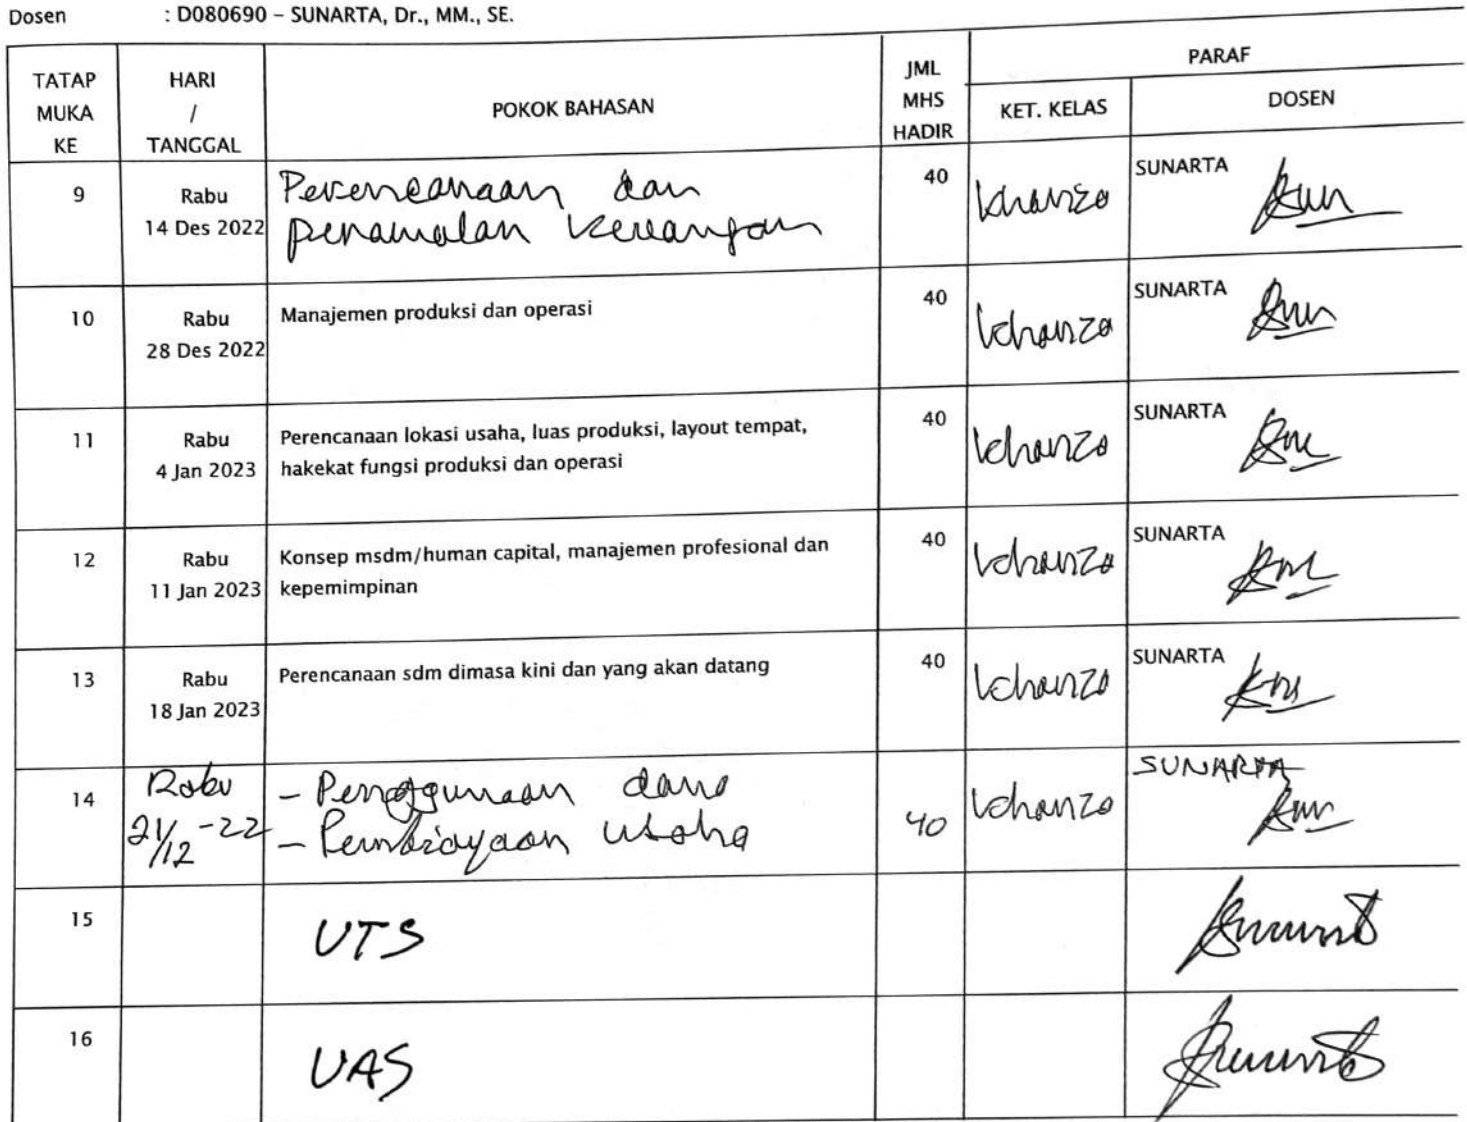 Dosen : D080690 – SUNARTA, Dr., MM., SE.
TATAP MUKA KE HARI / TANGGAL POKOK BAHASAN JML MHS HADIR PARAF
KET. KELAS DOSEN
9 Rabu 14 Des 2022 Perencanaan dan 40 khanza SUNARTA
penamalan keuangan
10 Rabu 28 Des 2022 Manajemen produksi dan operasi 40 khanza SUNARTA
11 Rabu 4 Jan 2023 Perencanaan lokasi usaha, luas produksi, layout tempat, 40 khanza SUNARTA
hakekat fungsi produksi dan operasi
12 Rabu 11 Jan 2023 Konsep msdm/human capital, manajemen profesional dan 40 khanza SUNARTA
kepemimpinan
13 Rabu 18 Jan 2023 Perencanaan sdm dimasa kini dan yang akan datang 40 khanza SUNARTA
14 Rabu 21/12-22 - Penggunaan dana 40 khanza SUNARTA
- Pembiayaan usaha
15 UTS
16 UAS